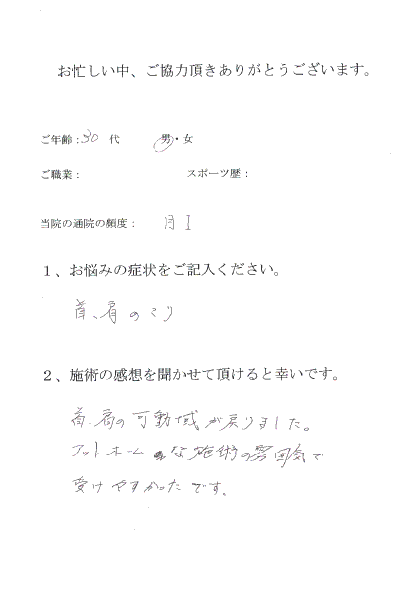 お忙しい中、ご協力頂きありがとうございます。
ご年齢：30 代 男・女
ご職業： スポーツ歴：
当院の通院の頻度： 月1
１、お悩みの症状をご記入ください。
首、肩のこり
２、施術の感想を聞かせて頂けると幸いです。
首、肩の可動域が戻りました。
アットホームな施術の雰囲気で
受けやすかったです。